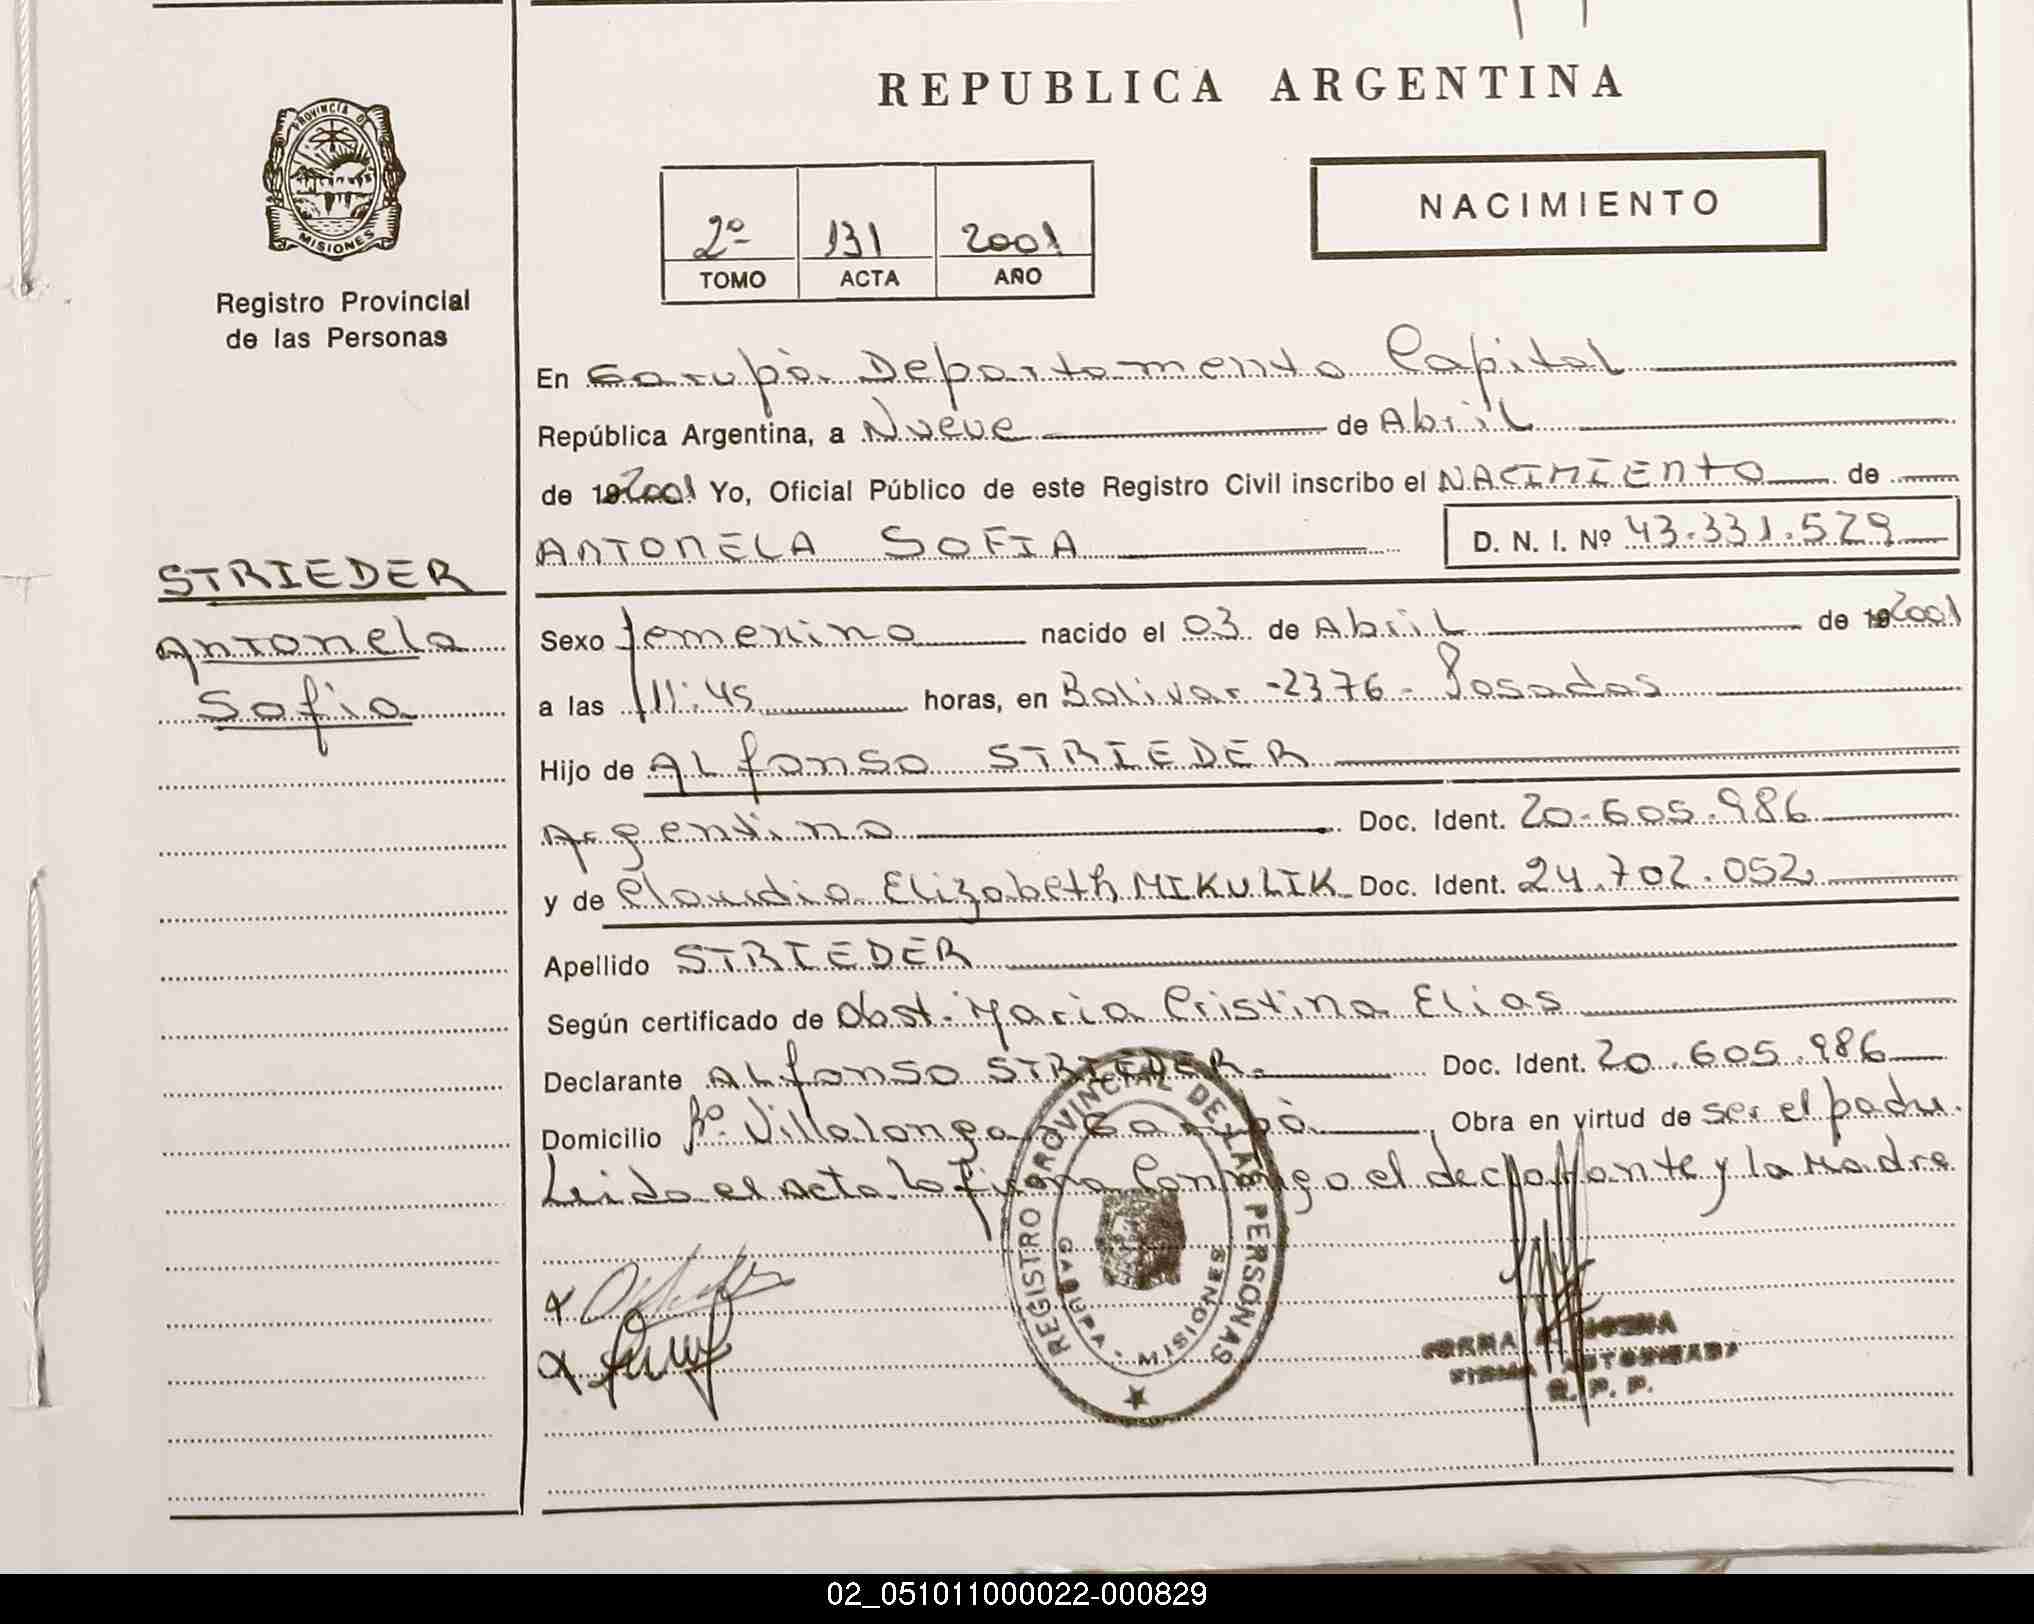 REPUBLICA ARGENTINA
PROVINCIA DE
MISIONES
Registro Provincial
de las Personas
2º 131 2001
TOMO ACTA AÑO
NACIMIENTO
En Garupà. Departamento Capital
República Argentina, a Nueve de Abril
de 192001 Yo, Oficial Público de este Registro Civil inscribo el NACIMIENTO de
ANTONELA SOFIA D. N. I. Nº 43.331.529
STRIEDER
Antonela
Sofia
Sexo femenino nacido el 03 de Abril de 192001
a las 11:45 horas, en Bolivar -2376- Posadas
Hijo de ALfonso STRIEDER
Argentino Doc. Ident. 20.605.986
y de Claudia Elizabeth MIKULIK Doc. Ident. 24.702.052
Apellido STRIEDER
Según certificado de Obst. Maria Cristina Elias
Declarante ALfonso STRIEDER. Doc. Ident. 20.605.986
Domicilio Bº Villalonga Garupà Obra en virtud de ser el padre.
Leida el Acta la firma Conmigo el declarante y la Madre
REGISTRO PROVINCIAL DE LAS PERSONAS
GARUPA - MISIONES
FIRMA AUTORIZADA
R. P. P.
02_051011000022-000829